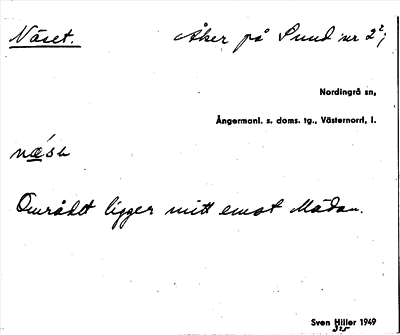 Näset. Åker på Sund nr 2²;
Nordingrå sn,
Ångermanl. s. doms. tg., Västernorrl. l.
Området ligger mitt emot Mädan.
Sven Hiller 1949